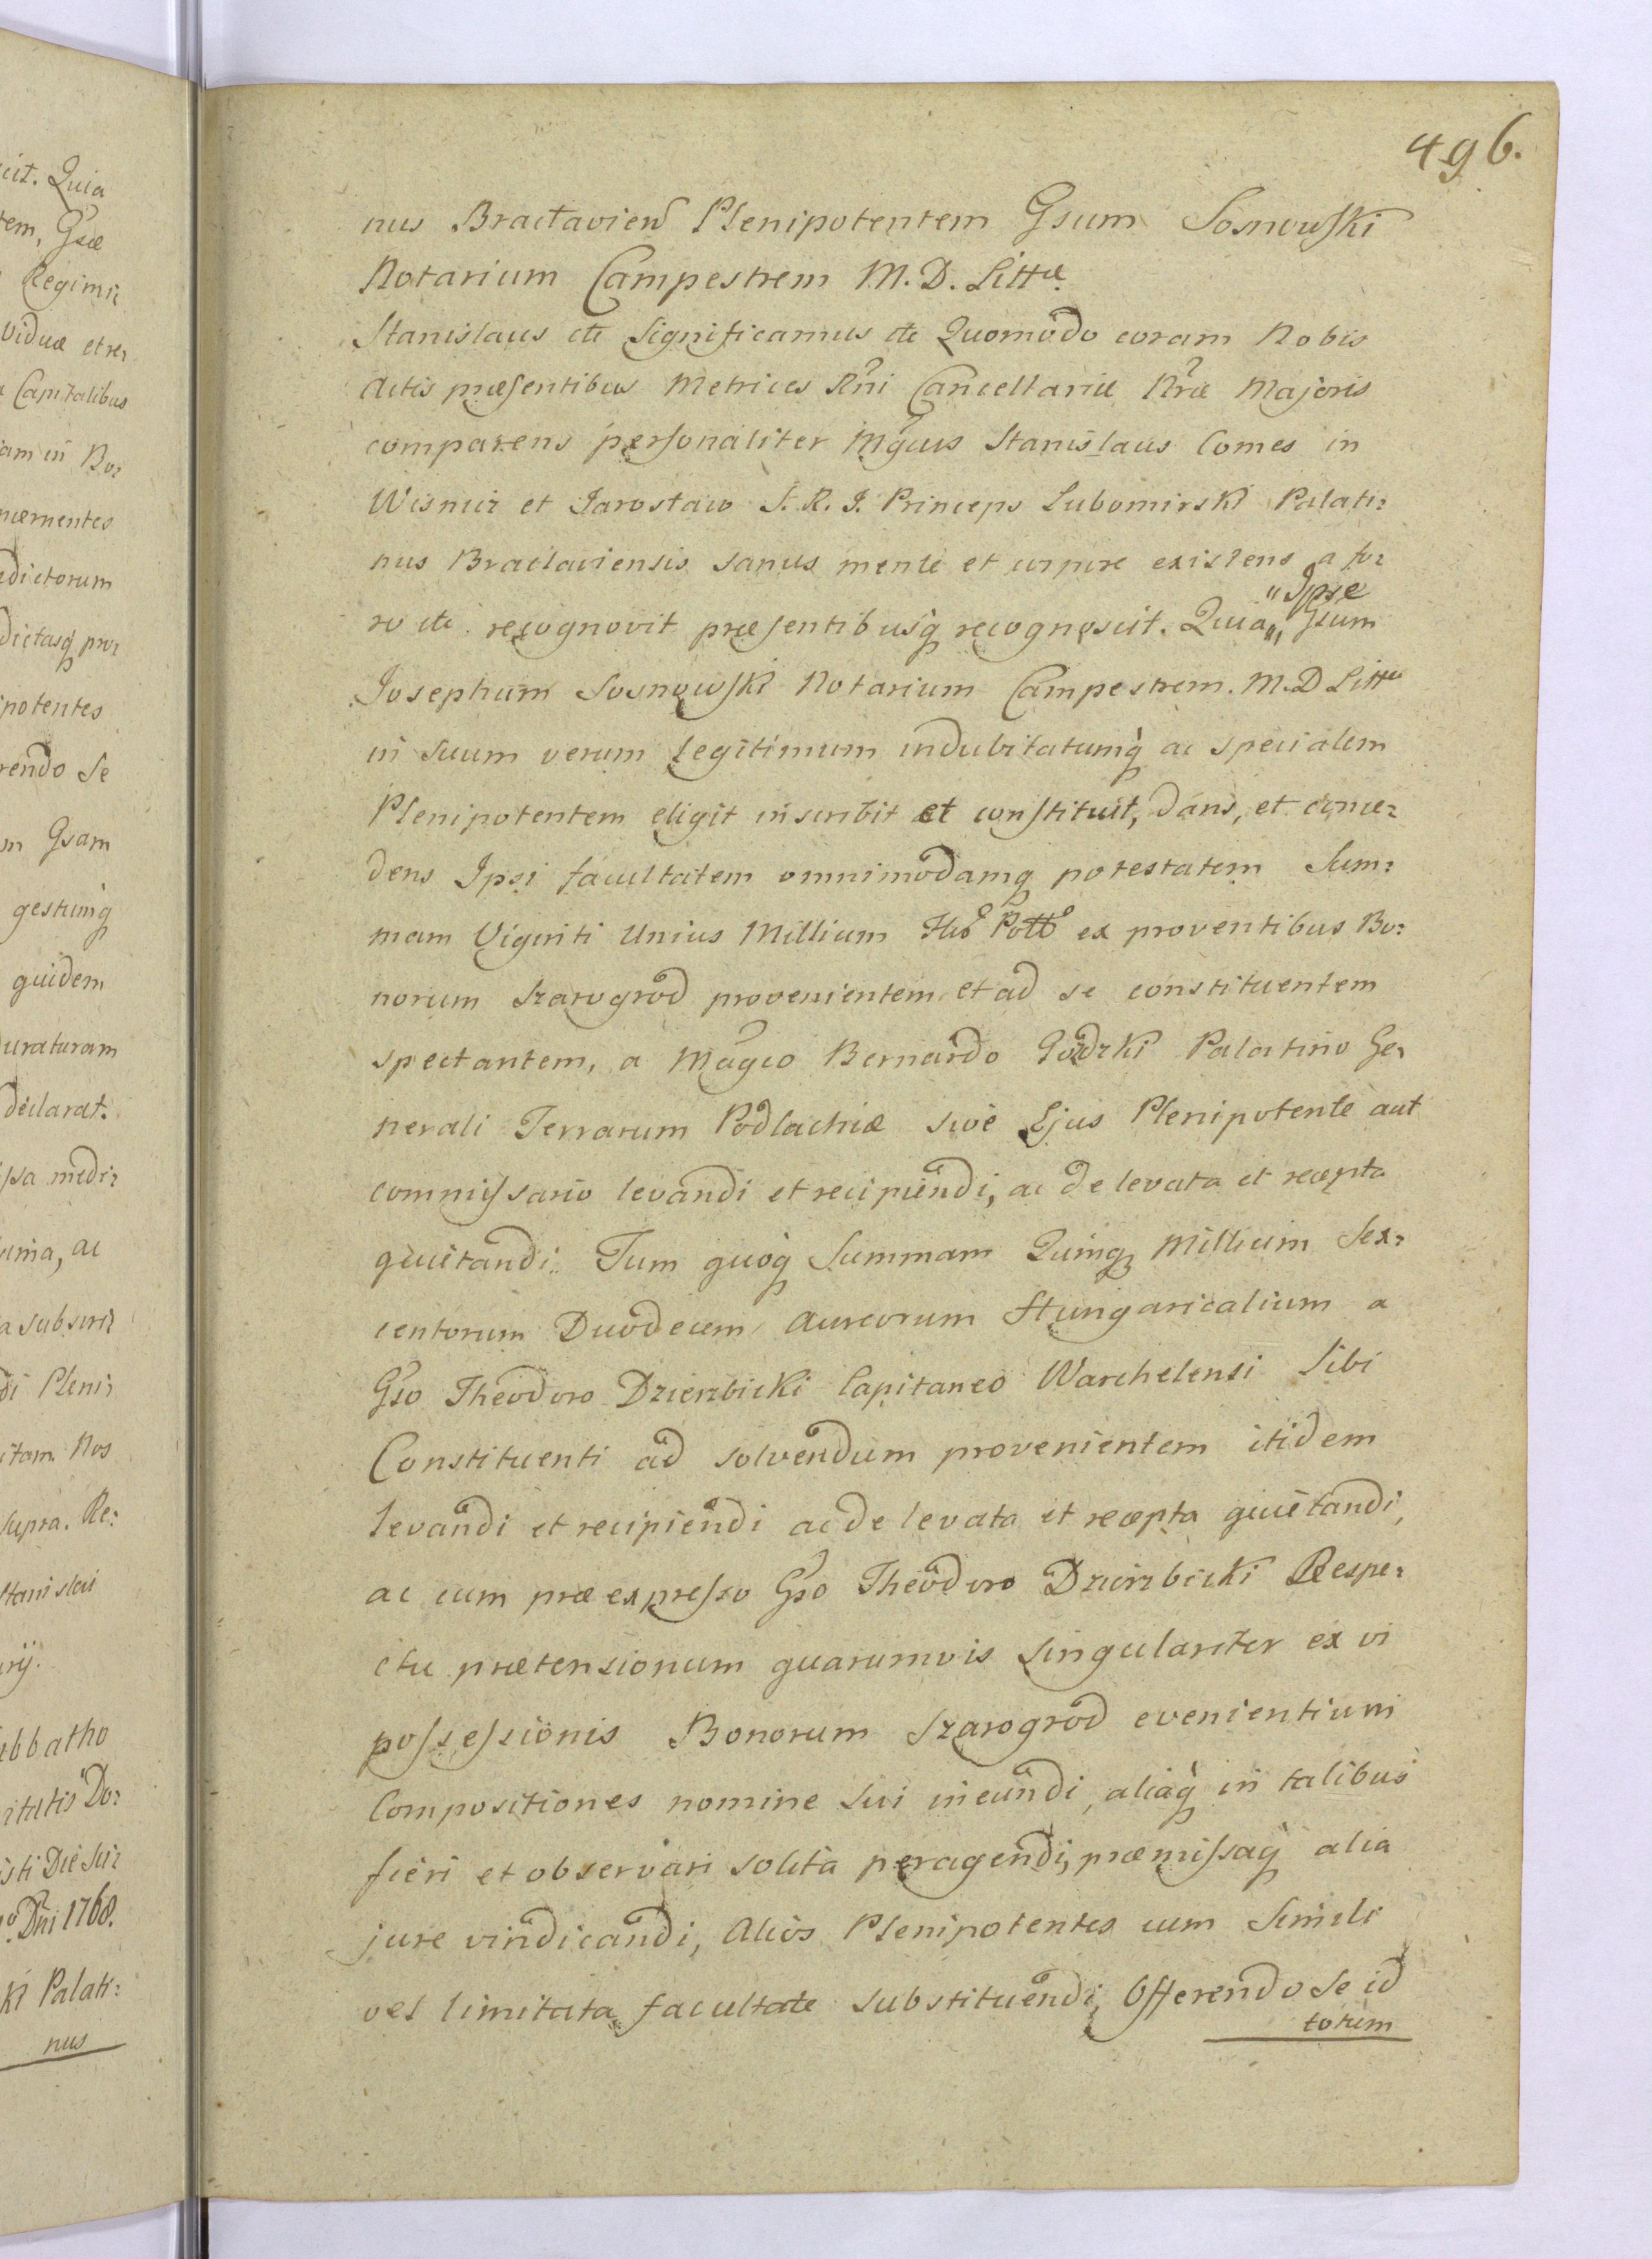 496.
nus Bractavien Plenipotentem Gsum Sosnowski
Notarium Campestrem M. D. Littæ.
Stanislaus etc Significamus etc Quomodo coram Nobis
Actis præsentibus Metrices Rni Cancellariæ Nræ Majoris
comparens personaliter Mgcus Stanislaus Comes in
Wisnicz et Jarosław S. R. I. Princeps Lubomirski Palati:
nus Braclaviensis sanus mente et corpore existens a fo:
ro etc. recognovit præsentibusq recognoscit. Quia „ Ipse „ Gsum
Josephum Sosnowski Notarium Campestrem. M. D Littæ
in suum verum Legitimum indubitatumq ac specialem
Plenipotentem eligit inscribit et constituit, dans, et conce:
dens Ipsi facultatem omnimodamq potestatem Sum:
mam Viginti Unius Millium Flro Pollo ex proventibus Bo:
norum Szarogrod provenientem et ad se constituentem
spectantem, a Magco Bernardo Gozdzki Palatino Ge:
nerali Terrarum Podlachiæ sive Ejus Plenipotente aut
commissario levandi et recipiendi, ac de levata et recepta
quietandi. Tum quoq Summam Quinq Millium Sex:
centorum Duodecem Aureorum Hungaricalium a
Gso Theodoro Dzierzbicki Capitaneo Warchelensi Sibi
Constituenti ad solvendum provenientem itidem
levandi et recipiendi ac de levata et recepta quietandi,
ac cum præexpresso Gso Theodoro Dzierzbicki Respe:
ctu prætensionum quarumvis singulariter ex vi
possessionis Bonorum Szarogrod evenientium
Compositiones nomine sui ineundi, aliaq in talibus
fieri et observari solita peragendi, præmissaq alia
jure vindicandi, Alios Plenipotentes cum Simili
vel limitata facultate substituendi, Offerendo se id
totum